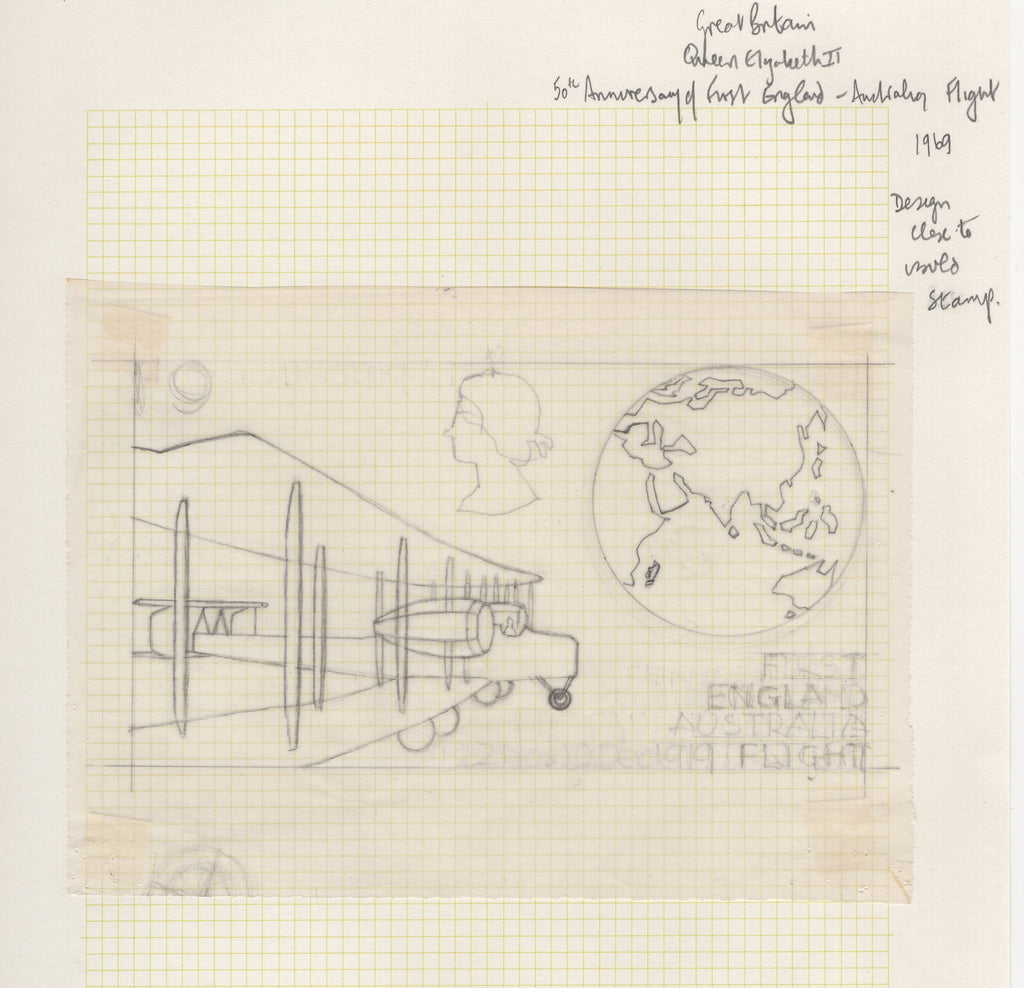 Great Britain
Queen Elizabeth II
50th Anniversary of First England - Australia Flight
1969
Design
close to
issued
Stamp.
1'9
FIRST
ENGLAND
AUSTRALIA
12 Nov 10 Dec 1919 FLIGHT